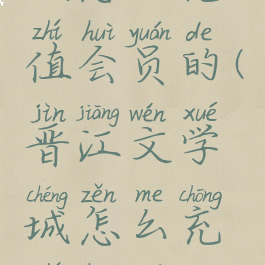 zhí huì yuán de
值会员的(
jìn jiāng wén xué
晋江文学
chéng zěn me chōng
城怎么充